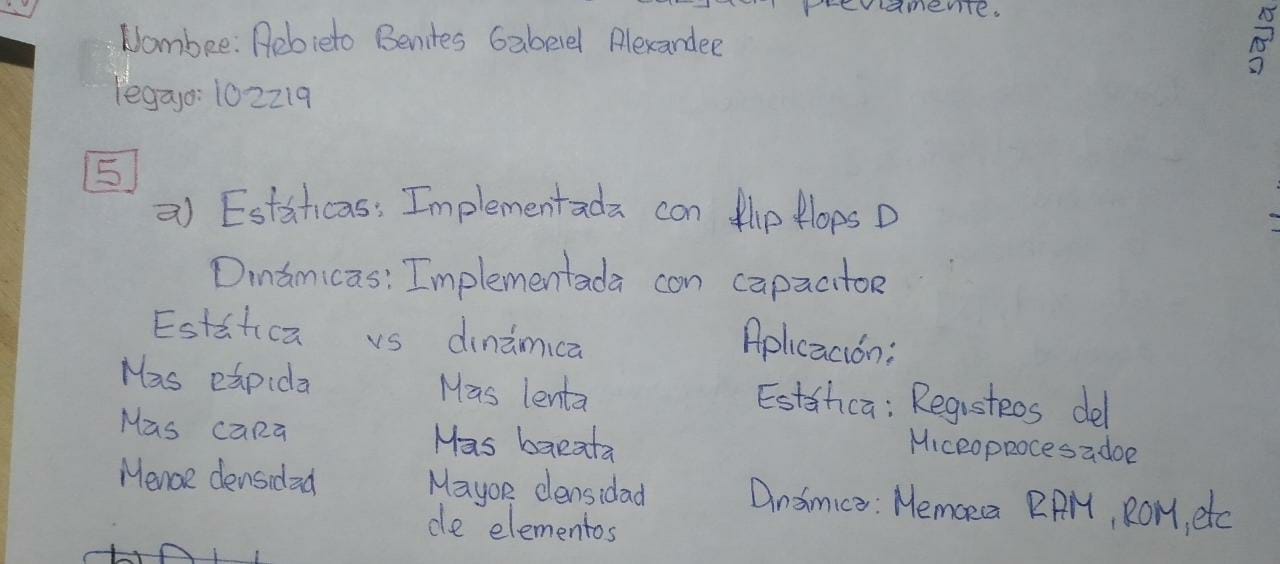 previamente.
Nombre: Arbieto Benites Gabriel Alexander
legajo: 102219
5
a) Estáticas: Implementada con flip flops D
Dinámicas: Implementada con capacitor
Estática vs dinámica
Mas rápida Mas lenta
Mas cara Mas barata
Menor densidad Mayor densidad de elementos
Aplicación:
Estática: Registros del
Microprocesador
Dinámica: Memoria RAM, ROM, etc